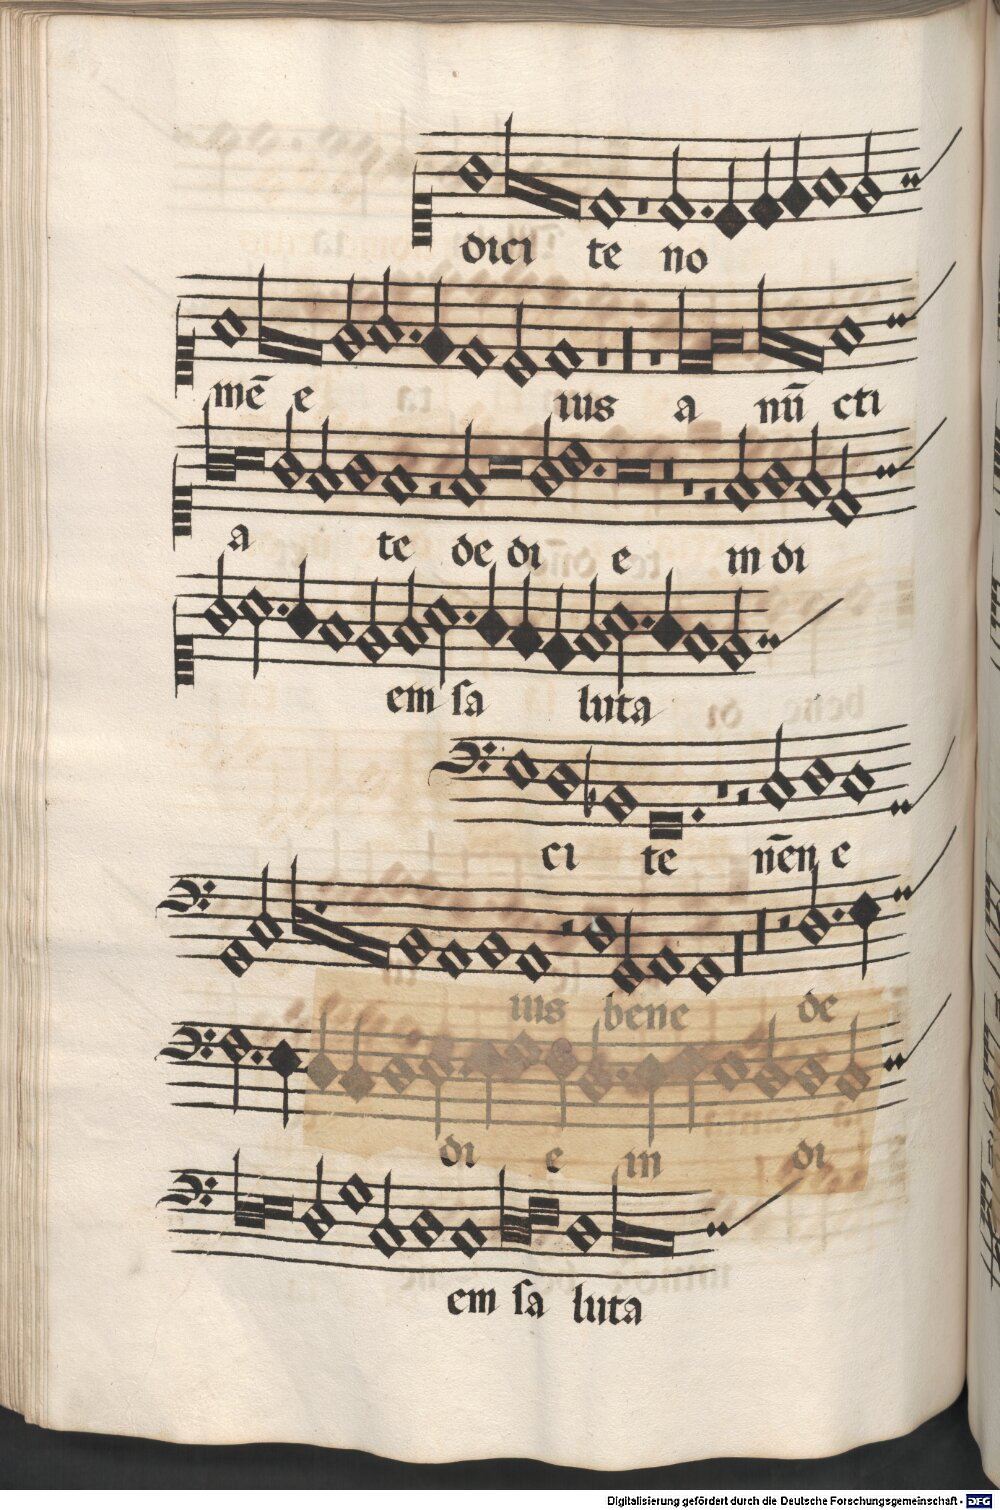 dici te no
mē e ius a nū cti
a te de di e in di
em sa luta
ci te nēn e
ius bene de
di e in di
em sa luta
Digitalisierung gefördert durch die Deutsche Forschungsgemeinschaft - DFG